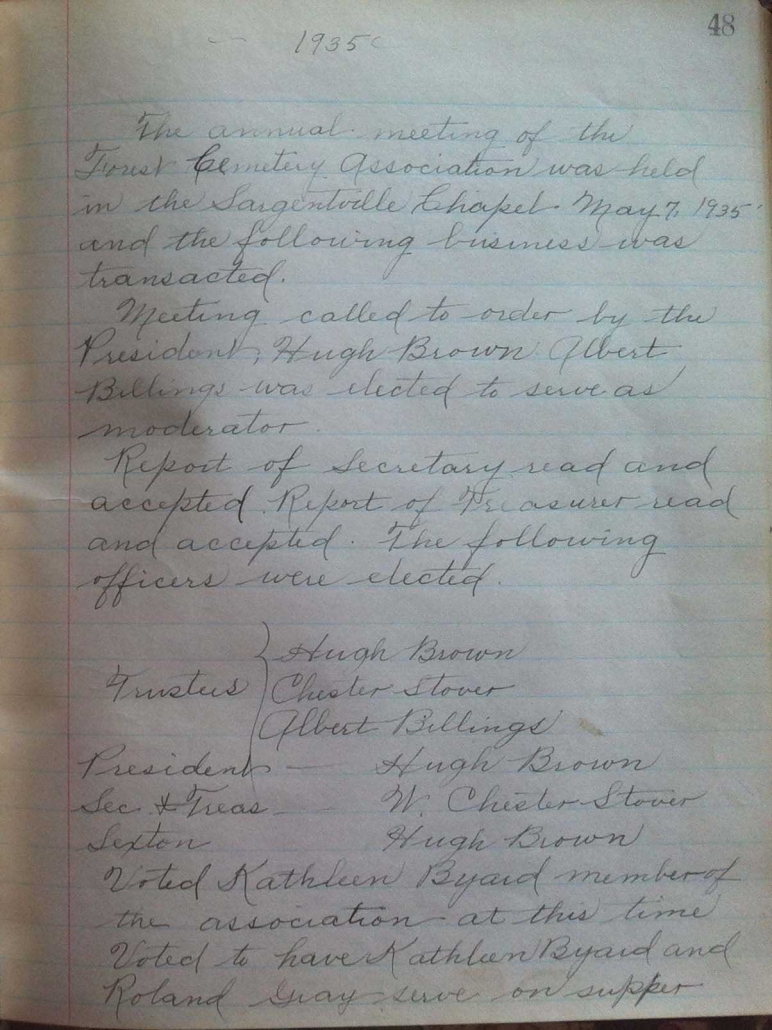 48
1935
The annual meeting of the
Forest Cemetery Association was held
in the Sargentville Chapel May 7, 1935
and the following business was
transacted.
Meeting called to order by the
President, Hugh Brown Albert
Billings was elected to serve as
moderator.
Report of Secretary read and
accepted. Report of Treasurer read
and accepted. The following
officers were elected.
Hugh Brown
Trustees Chester Stover
Albert Billings
President — Hugh Brown
Sec & Treas — W. Chester Stover
Sexton Hugh Brown
Voted Kathleen Byard member of
the association at this time
Voted to have Kathleen Byard and
Roland Gray serve on supper